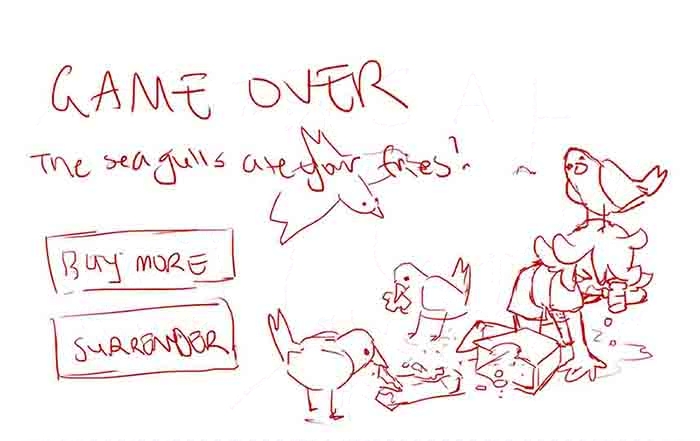 GAME OVER
The seagulls ate your fries!
BUY MORE
SURRENDER